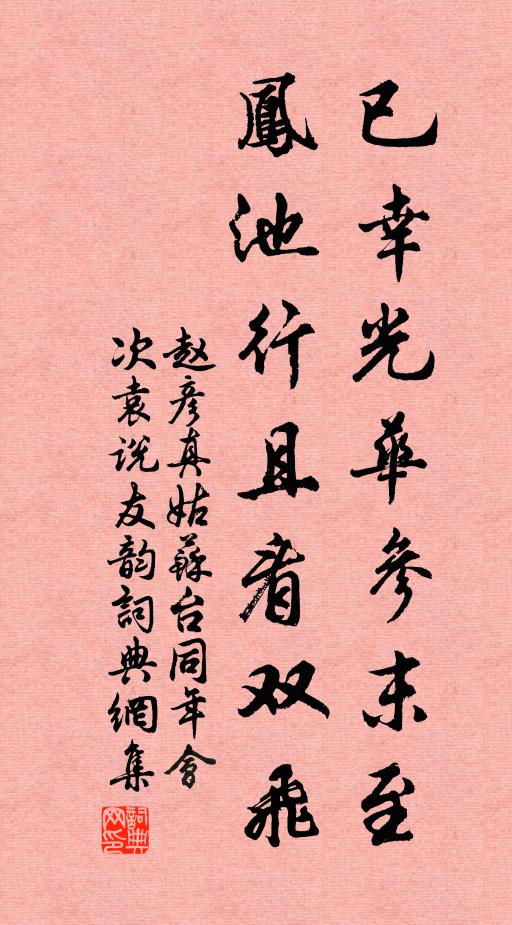 已幸光华參末至
鳳池行且看双飛
赵彦真姑蘇台同年會
次袁说友韵詞典網集
詞典网印